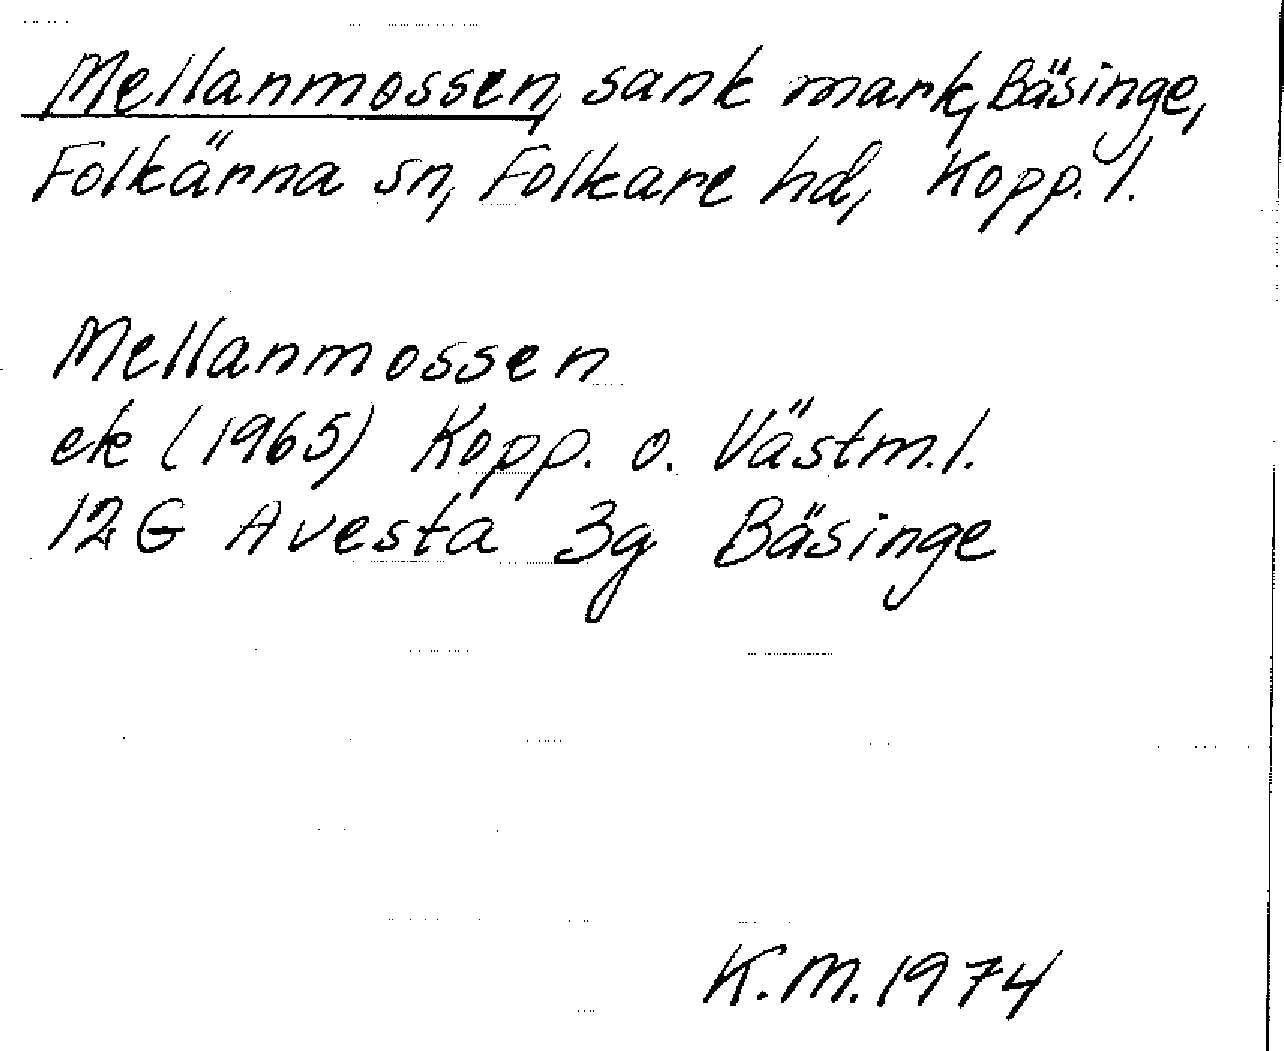 Mellanmossen, sank mark, Bäsinge,
Folkärna sn, Folkare hd, Kopp. l.
Mellanmossen
ek (1965) Kopp. o. Västm. l.
12 G Avesta 3g Bäsinge
K.M. 1974